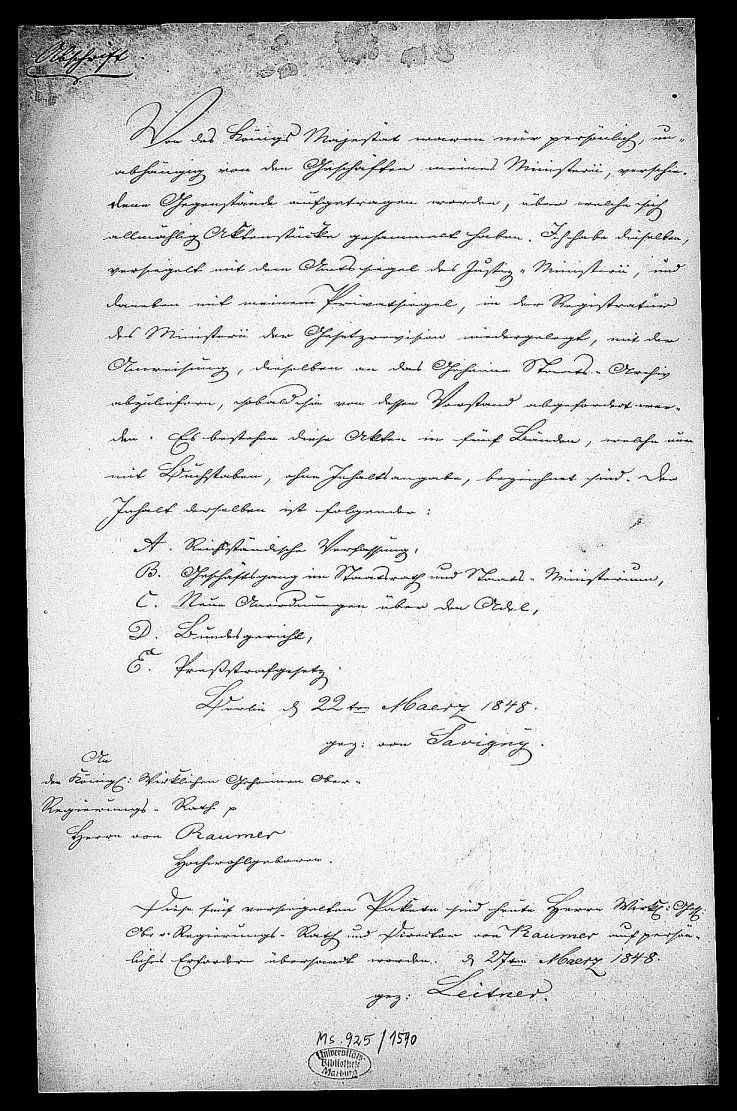 Abschrift
Von des Königs Majestät waren mir persönlich, un-
abhängig von den Geschäften meines Ministerii, verschie-
dene Gegenstände aufgetragen worden, über welche sich
allmählig Aktenstücke gesammelt haben. Ich habe dieselben,
versiegelt mit dem Amtssiegel des Justiz-Ministerii, und
daneben mit meinem Privatsiegel, in der Registratur
des Ministerii der Gesetzrevision niedergelegt, mit der
Anweisung, dieselben an das Geheime Staats-Archiv
abzuliefern, sobald sie von dessen Vorstand abgefordert wer-
den. Es bestehen diese Akten in fünf Bänden, welche nur
mit Buchstaben, ohne Inhaltsangabe, bezeichnet sind. Der
Inhalt derselben ist folgender:
A. Reichsständische Verfassung,
B. Geschäftsgang im Staatsrath und Staats-Ministerium,
C. Neue Anordnungen über den Adel,
D. Bundesgericht,
E. Preßstrafgesetz.
Berlin d 22ten Maerz 1848.
gez: von Savigny.
An
den Königl: Wirklichen Geheimen Ober-
Regierungs-Rath p
Herrn von Raumer
Hochwohlgeboren.
Diese fünf versiegelten Pakete sind heute Herrn Wirkl: Geh:
Ober-Regierungs-Rath und Director von Raumer auf persön-
liches Erfordern übersandt worden. d 27ten Maerz 1848.
gez: Leitner.
Ms. 925/1590
Universitäts-
Bibliothek
Marburg